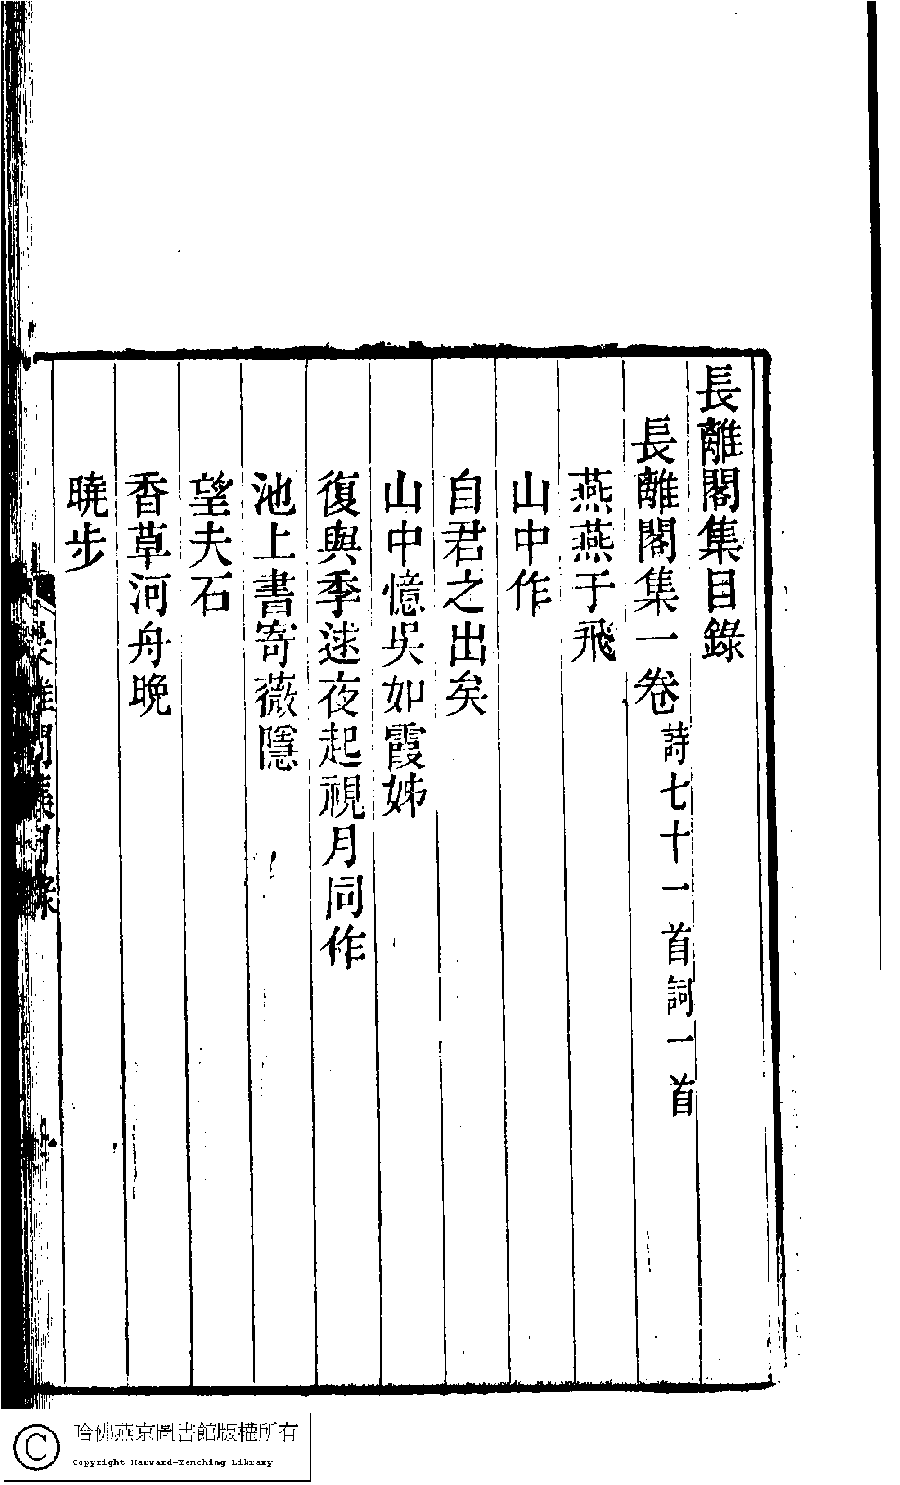 長離閣集目錄
長離閣集一卷詩七十一首詞一首
燕燕于飛
山中作
自君之出矣
山中憶吳如霞姊
復與季逑夜起視月同作
池上書寄薇隱
望夫石
香草河舟晚
曉步
長離閣集目錄
哈佛燕京圖書館版權所有
Copyright Harvard-Yenching Library